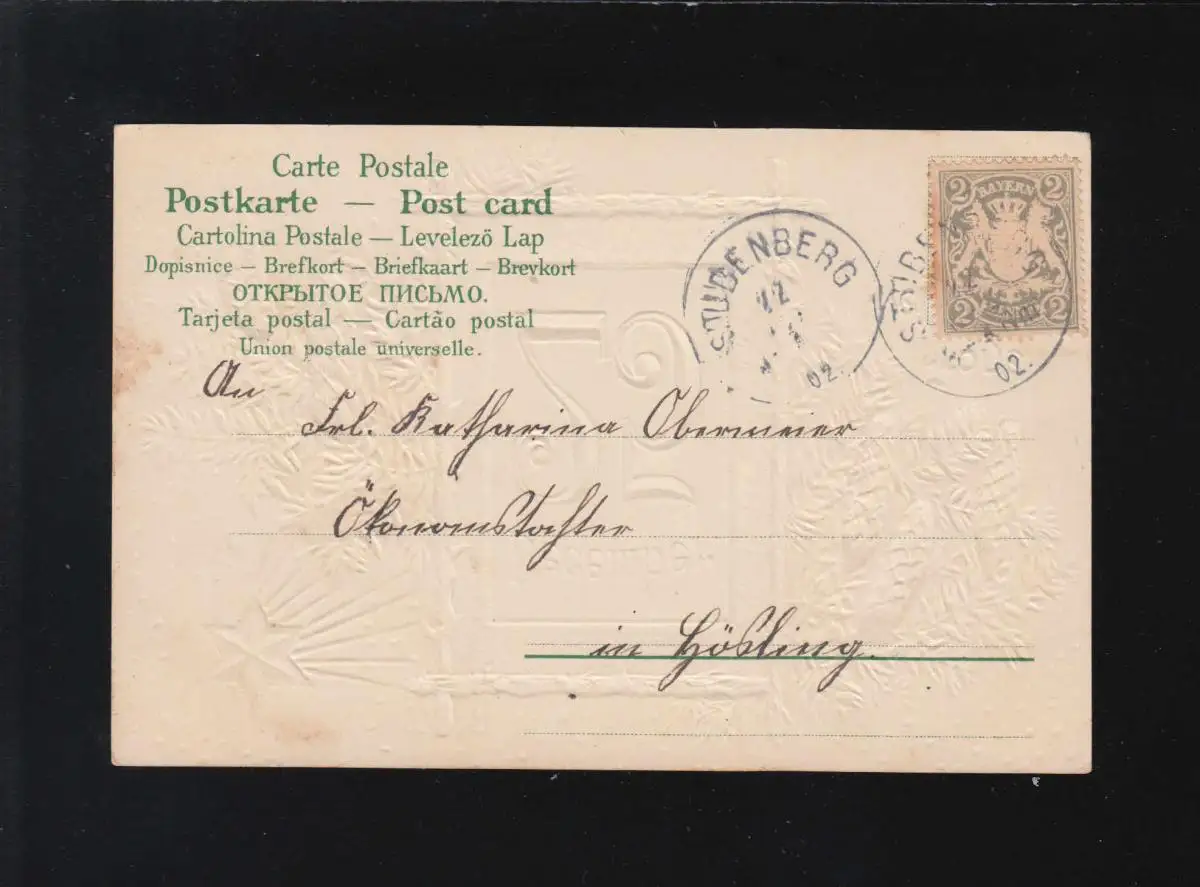 Carte Postale
Postkarte — Post card
Cartolina Postale — Levelezö Lap
Dopisnice – Brefkort – Briefkaart – Brevkort
ОТКРЫТОЕ ПИСЬМО.
Tarjeta postal — Cartão postal
Union postale universelle.
STUBENBERG
02.
2 BAYERN 2
2 2
02.
An
Frl. Katharina Obermeier
Ökonomstochter
in Hösling.